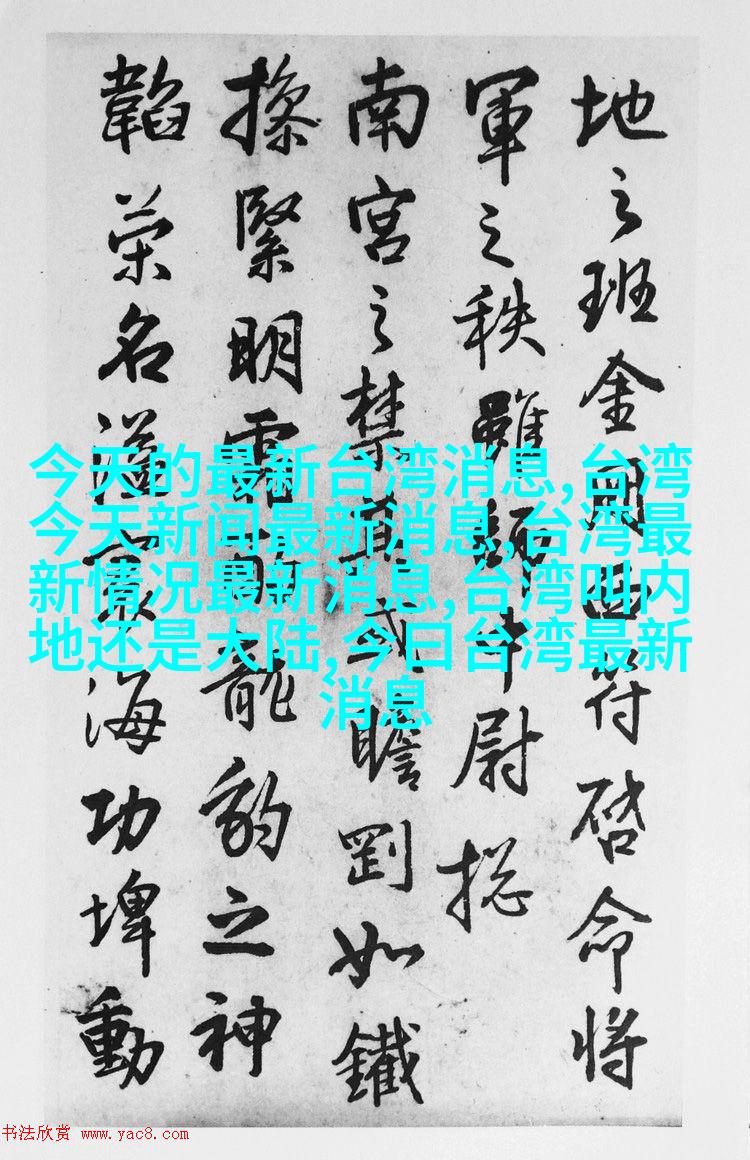 地之班金符啓命将
軍之秩雖中尉捴
南宮之禁或瞻剛如鐵
操緊明龍豹之神
韜荣名溢寰海功埤動
今天的最新台湾消息,台湾
今天新闻最新消息,台湾最
新情况最新消息,台湾叫内
地还是大陆,今日台湾最新
消息
书法欣赏 www.yac8.com